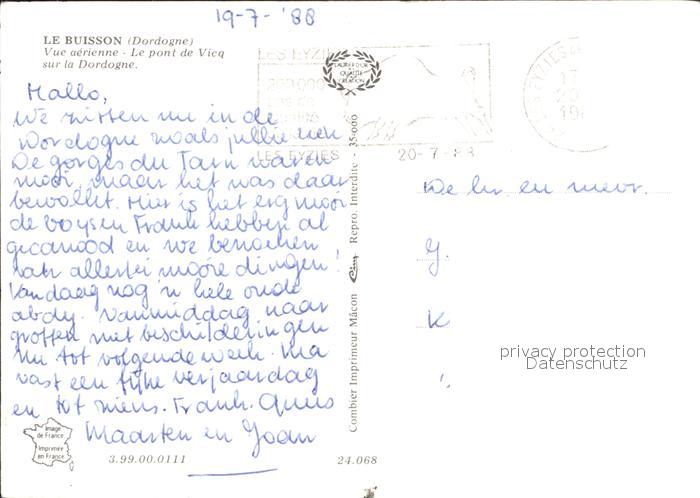 19-7-'88
LE BUISSON (Dordogne)
Vue aérienne - Le pont de Vicq
sur la Dordogne.
LES EYZIES
LES EYZIES 20-7-88
LAURIER D'OR
QUALITE
CREATION
Hallo,
We zitten nu in de
Dordogne zoals jullie
De gorges du Tarn waren
mooi, maar het was daar
bewolkt. Hier is het erg mooi
de boys en Frank hebben al
gecanood en we bezoeken
allerlei mooie dingen!
Vandaag nog 'n hele oude
abdy. Vanmiddag naar
grotten met beschilderingen
nu tot volgende week. Ma
vast een fijne verjaardag
en tot ziens. Frank.
Maarten en Joan
De hr. en mevr.
G.
K
privacy protection
Datenschutz
Combier Imprimeur Mâcon Repro. Interdite - 35.000
Image
de France
Imprimée
en France
3.99.00.0111
24.068